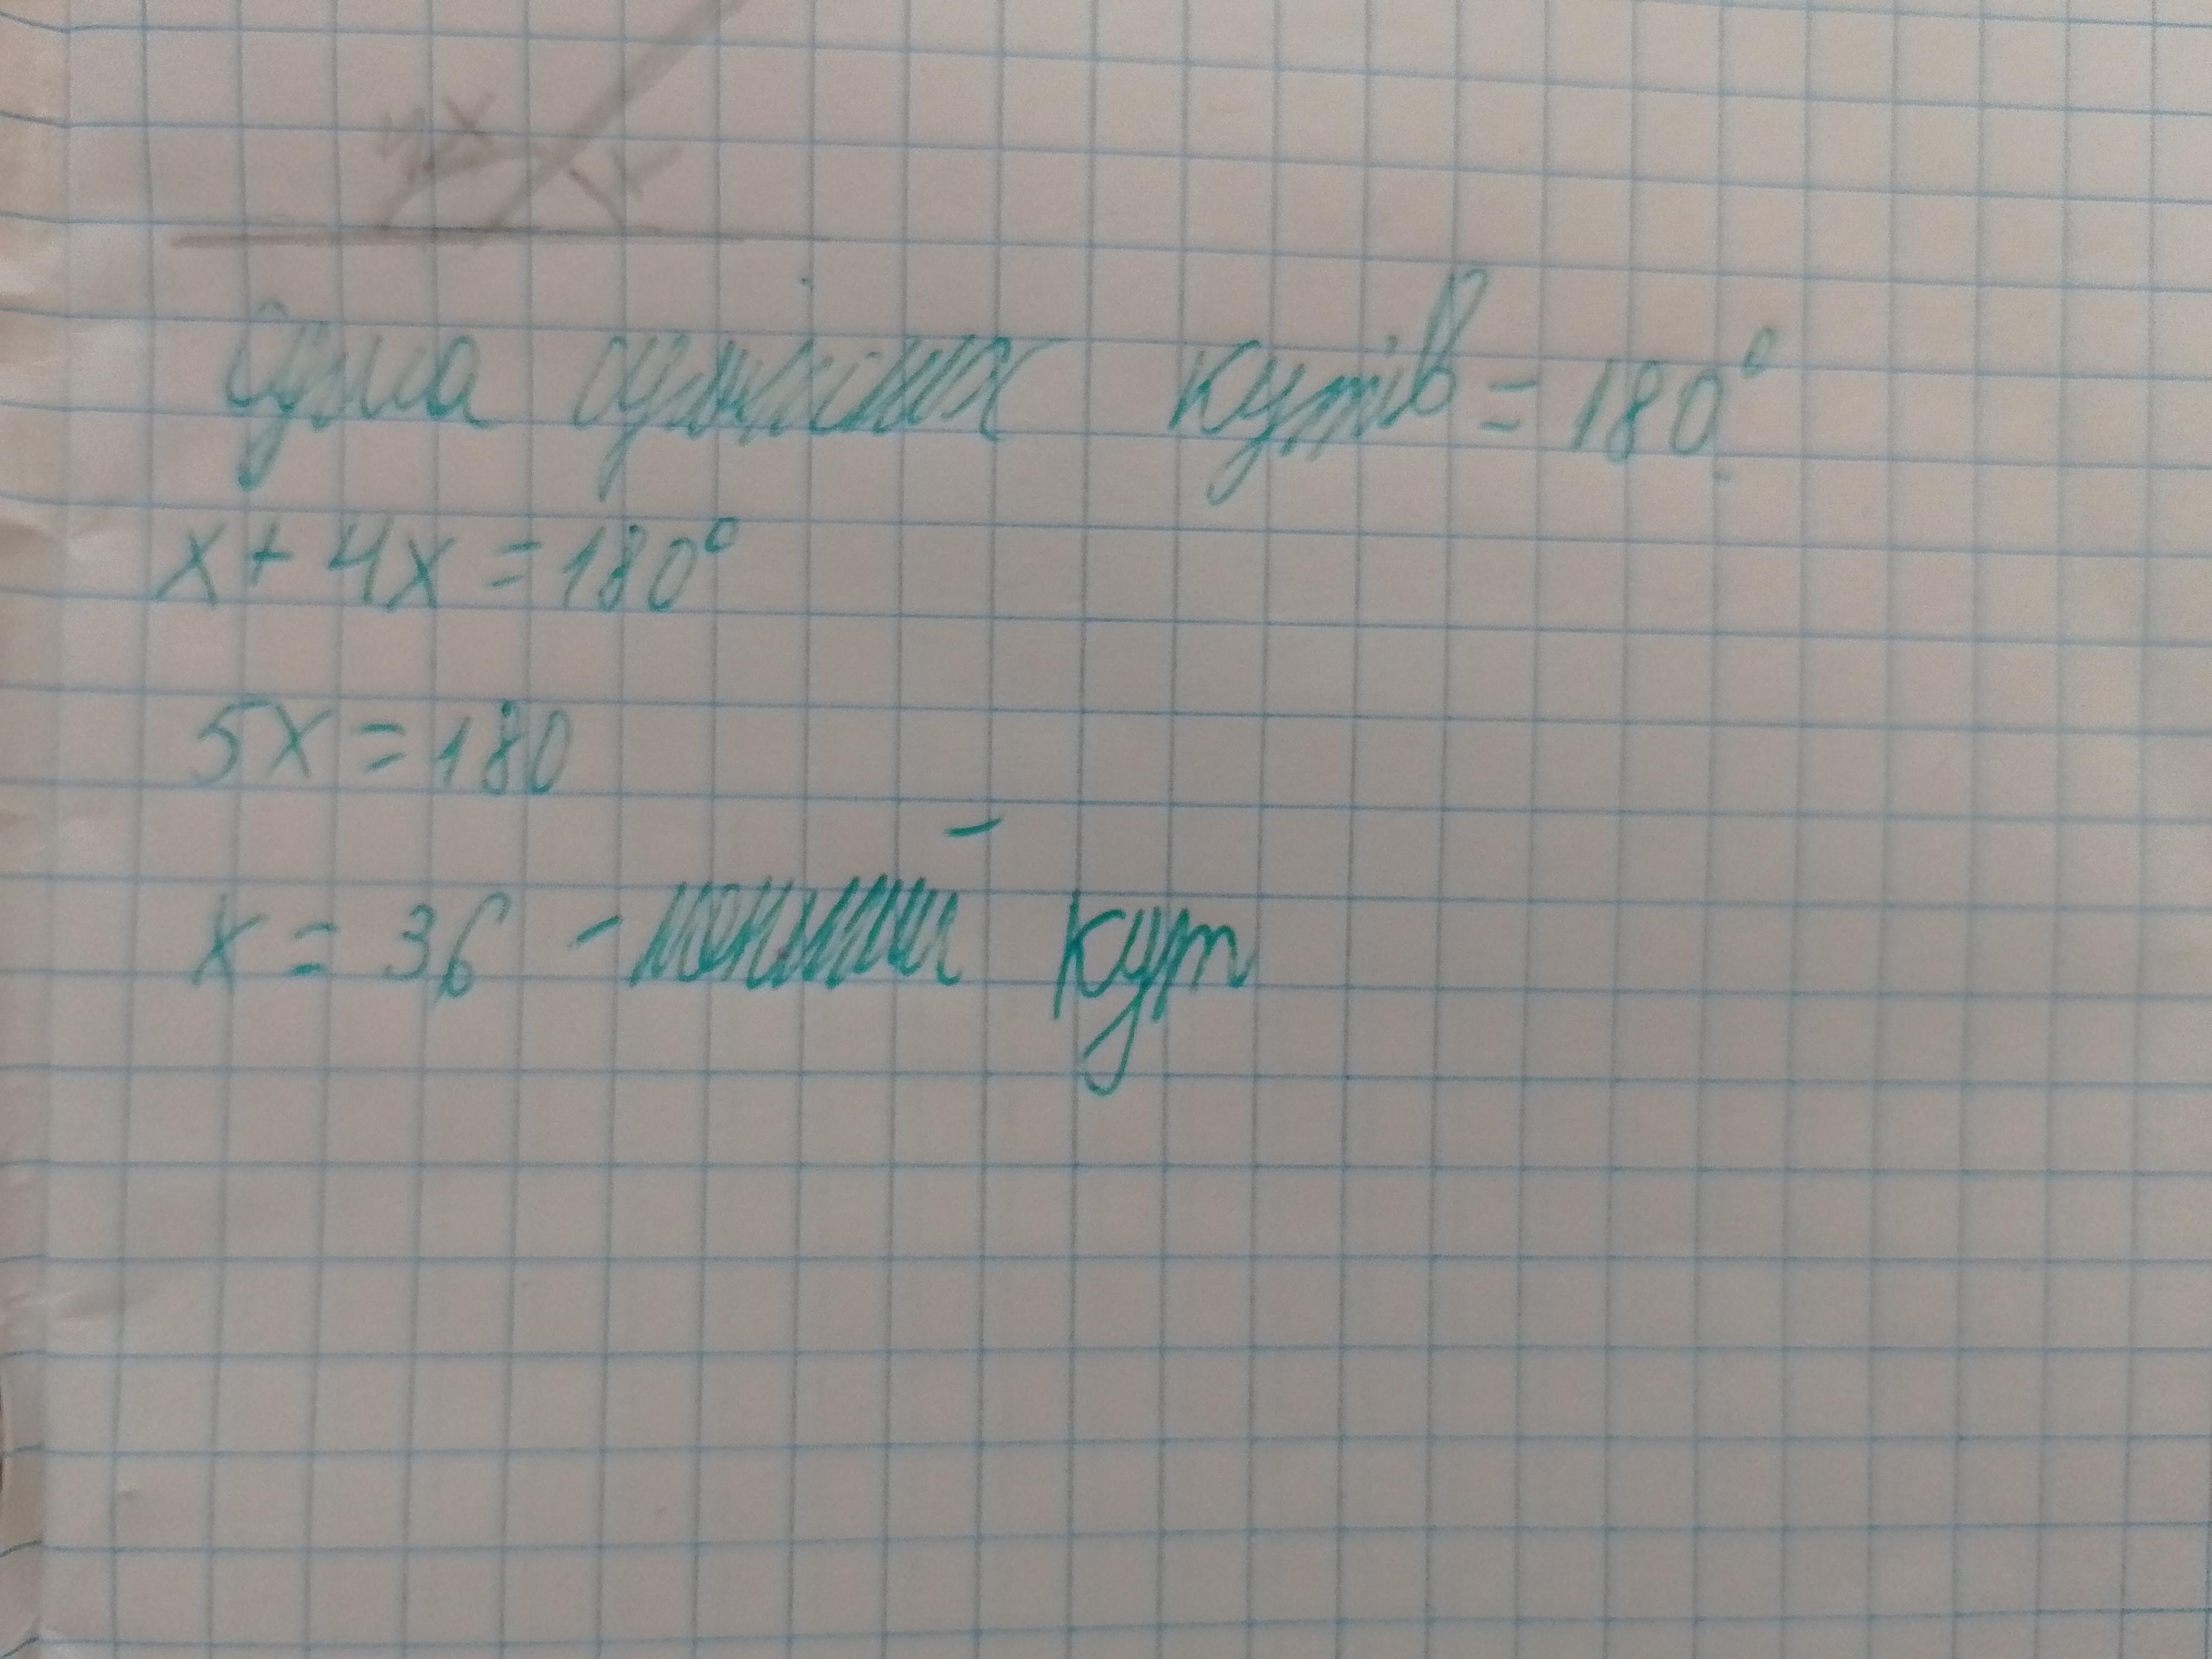 4x x
Сума суміжних кутів = 180°
x + 4x = 180°
5x = 180
x = 36 - менший кут